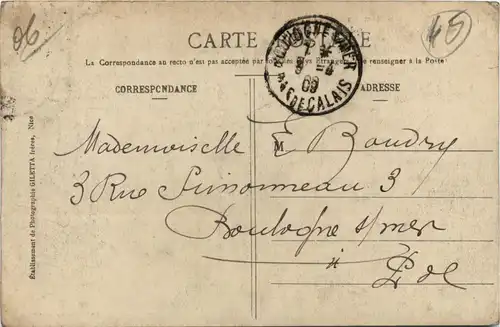 06
45
CARTE POSTALE
La Correspondance au recto n'est pas acceptée par tous les pays Etrangers. Se renseigner à la Poste
BOULOGNE S MER
09
PAS DE CALAIS
CORRESPONDANCE
ADRESSE
M
Mademoiselle E Boudry
3 Rue Simonneau 3
Boulogne s/mer
P. de C
Établissement de Photographie GILETTA frères, Nice